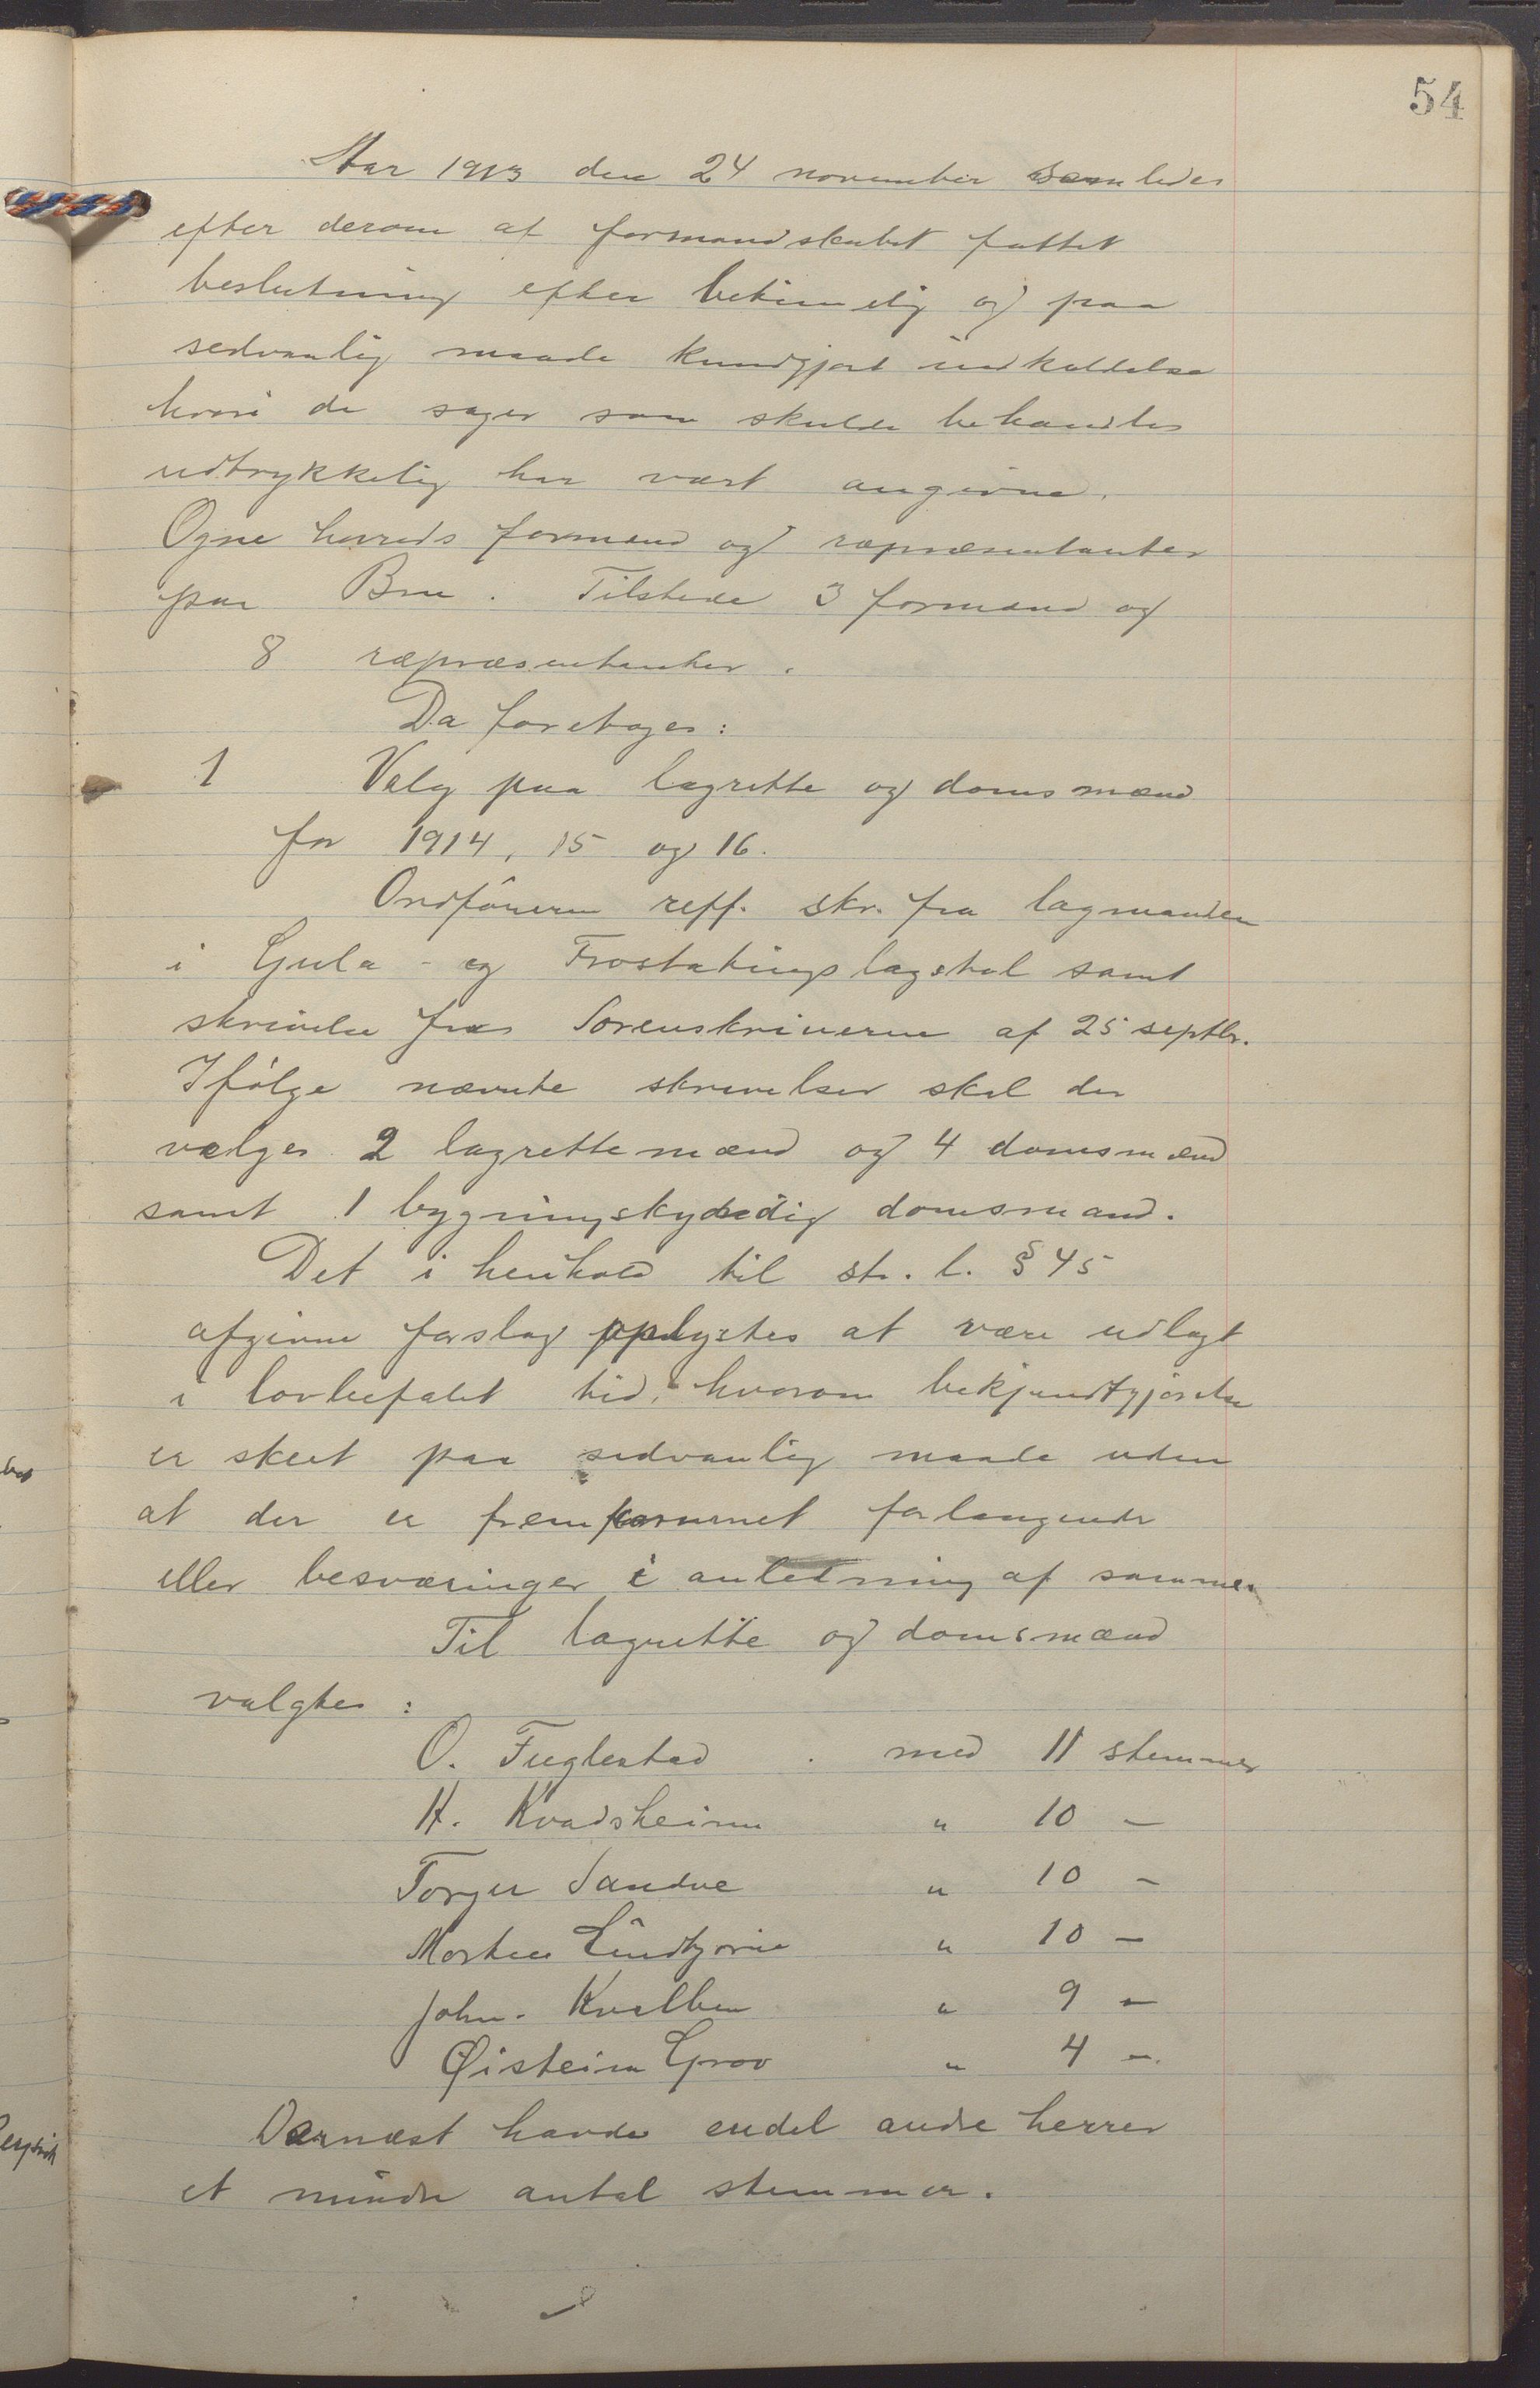 54
Aar 1913 den 24 november samledes
efter derom af formandskabet fattet
beslutning efter betimelig og paa
sedvanlig maade kundgjort indkaldelse
hvori de sager som skulde behandles
udtrykkelig har vært angivne.
Ogne herreds formænd og repræsentanter
paa Bru. Tilstede 3 formænd og
8 repræsentanter.
Da foretoges:
1 Valg paa lagrette og domsmænd
for 1914, 15 og 16.
Ordføreren reff. skr. fra lagmanden
i Gula- og Frostatings lagstol samt
skrivelse fra Sorenskriveren af 25 septbr.
Ifølge nævnte skrivelser skal der
vælges 2 lagrettemænd og 4 domsmænd
samt 1 bygningskyndig domsmand.
Det i henhold til str. l. § 45
afgivne forslag oplystes at være udlagt
i lovbefalet tid, hvorom bekjendtgjørelse
er skeet paa sedvanlig maade uden
at der er fremkommet forlangende
eller besværinger i anledning af samme
Til lagrette og domsmænd
valgtes:
O. Fuglestad . med 11 stemmer
H. Kvadsheim " 10 —
Torger Sandve " 10 —
Morten Lindtjørn " 10 —
John. Kvalben " 9 —
Øistein Grov " 4 —.
Dernæst havde endel andre herrer
et mindre antal stemmer.